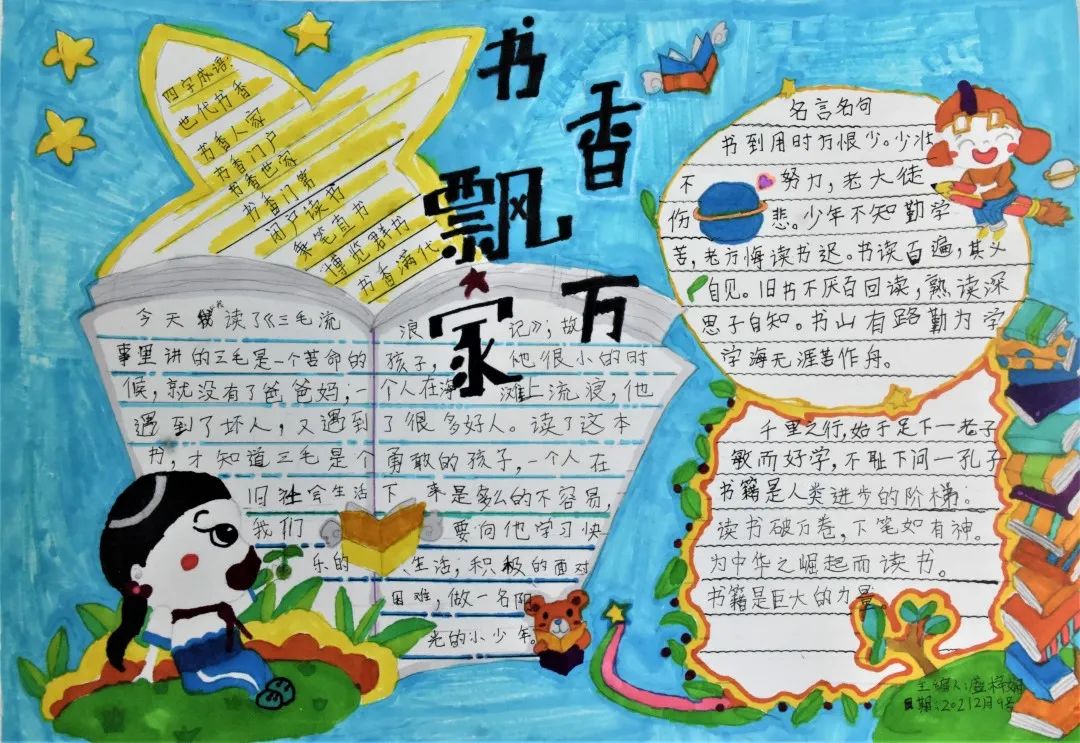 书香飘万家
四字成语:
世代书香
书香人家
书香门户
书香世家
书香门第
闭户读书
秉笔直书
博览群书
书香满代
今天我读了《三毛流浪记》;故
事里讲的三毛是一个苦命的孩子,他很小的时
候,就没有了爸爸妈;一个人在海滩上流浪,他
遇到了坏人,又遇到了很多好人。读了这本
书,才知道三毛是个勇敢的孩子,一个人在
旧社会生活下来是多么的不容易,
我们要向他学习快
乐的生活,积极的面对
困难,做一名阳
光的小少年。
名言名句
书到用时方恨少。少壮
不努力,老大徒
伤悲。少年不知勤学
苦,老方悔读书迟。书读百遍,其义
自见。旧书不厌百回读,熟读深
思子自知。书山有路勤为学
学海无涯苦作舟。
千里之行,始于足下一老子
敏而好学,不耻下问一孔子
书籍是人类进步的阶梯。
读书破万卷,下笔如有神。
为中华之崛起而读书。
书籍是巨大的力量
主编人:
日期:20212月9号